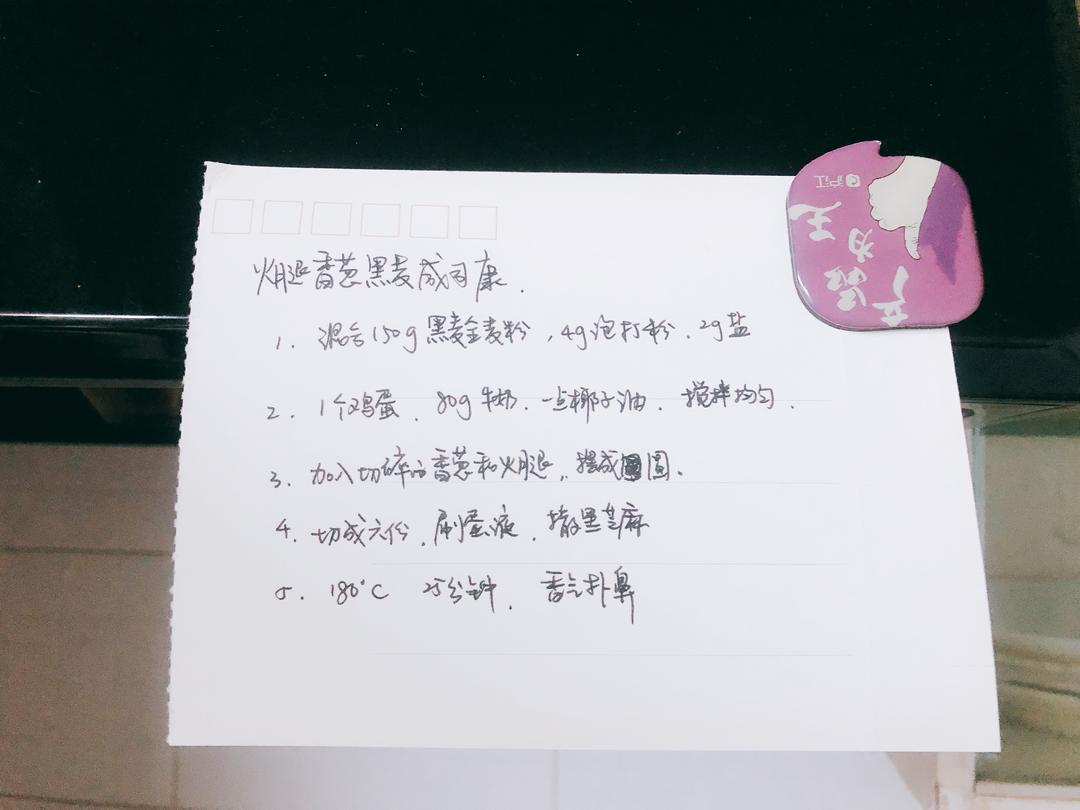 火腿香葱黑麦成司康.
1. 混合150g黑麦全麦粉，4g泡打粉、2g盐
2. 1个鸡蛋、80g牛奶、一点椰子油、搅拌均匀.
3. 加入切碎的香葱和火腿，揉成圆.
4. 切成六份、刷蛋液、撒黑芝麻
5. 180°C 25分钟、香气扑鼻
沪江
为王